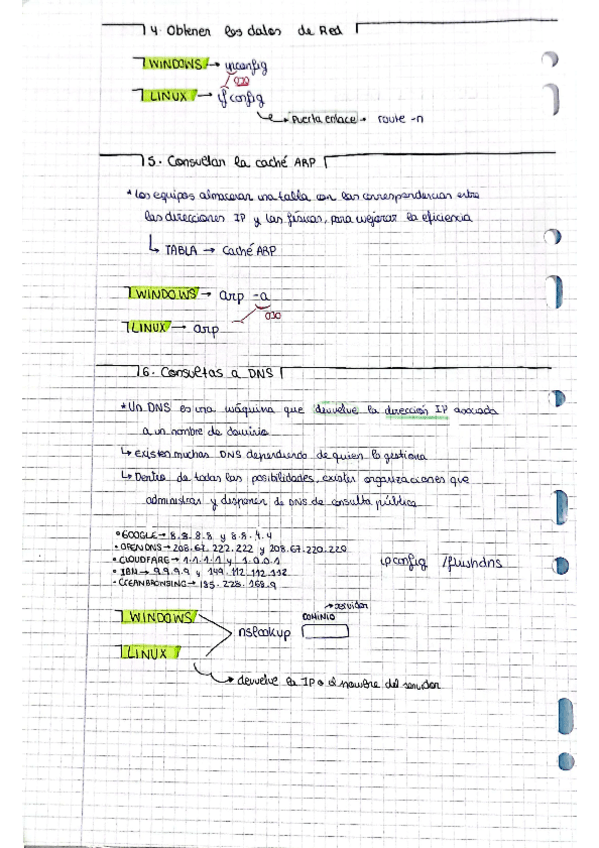 4. Obtener los datos de Red
WINDOWS → ipconfig
OJO
LINUX → ifconfig
Puerta enlace → route -n
5. Consultar la caché ARP
* Los equipos almacenan una tabla con las correspondencias entre
las direcciones IP y las físicas, para mejorar la eficiencia
↳ TABLA → Caché ARP
WINDOWS → arp -a
OJO
LINUX → arp
6. Consultas a DNS
* Un DNS es una máquina que devuelve la dirección IP asociada
a un nombre de dominio
↳ existen muchas DNS dependiendo de quien lo gestiona
↳ Dentro de todas las posibilidades, existen organizaciones que
administran y disponen de DNS de consulta pública
• GOOGLE → 8.8.8.8 y 8.8.4.4
• OPENDNS → 208.67.222.222 y 208.67.220.220
• CLOUDFARE → 1.1.1.1 y 1.0.0.1
ipconfig /flushdns
• IBM → 9.9.9.9 y 149.112.112.112
• CLEANBROWSING → 185.228.168.9
→ servidor
WINDOWS
DOMINIO
nslookup
LINUX
↳ devuelve la IP o el nombre del servidor